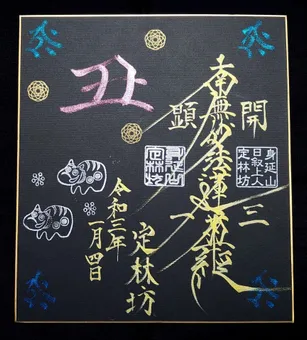 開三
身延山
日叙上人
定林坊
南無妙法蓮華経
顕一
身延山
定林坊
定林坊
令和三年
一月四日
丑